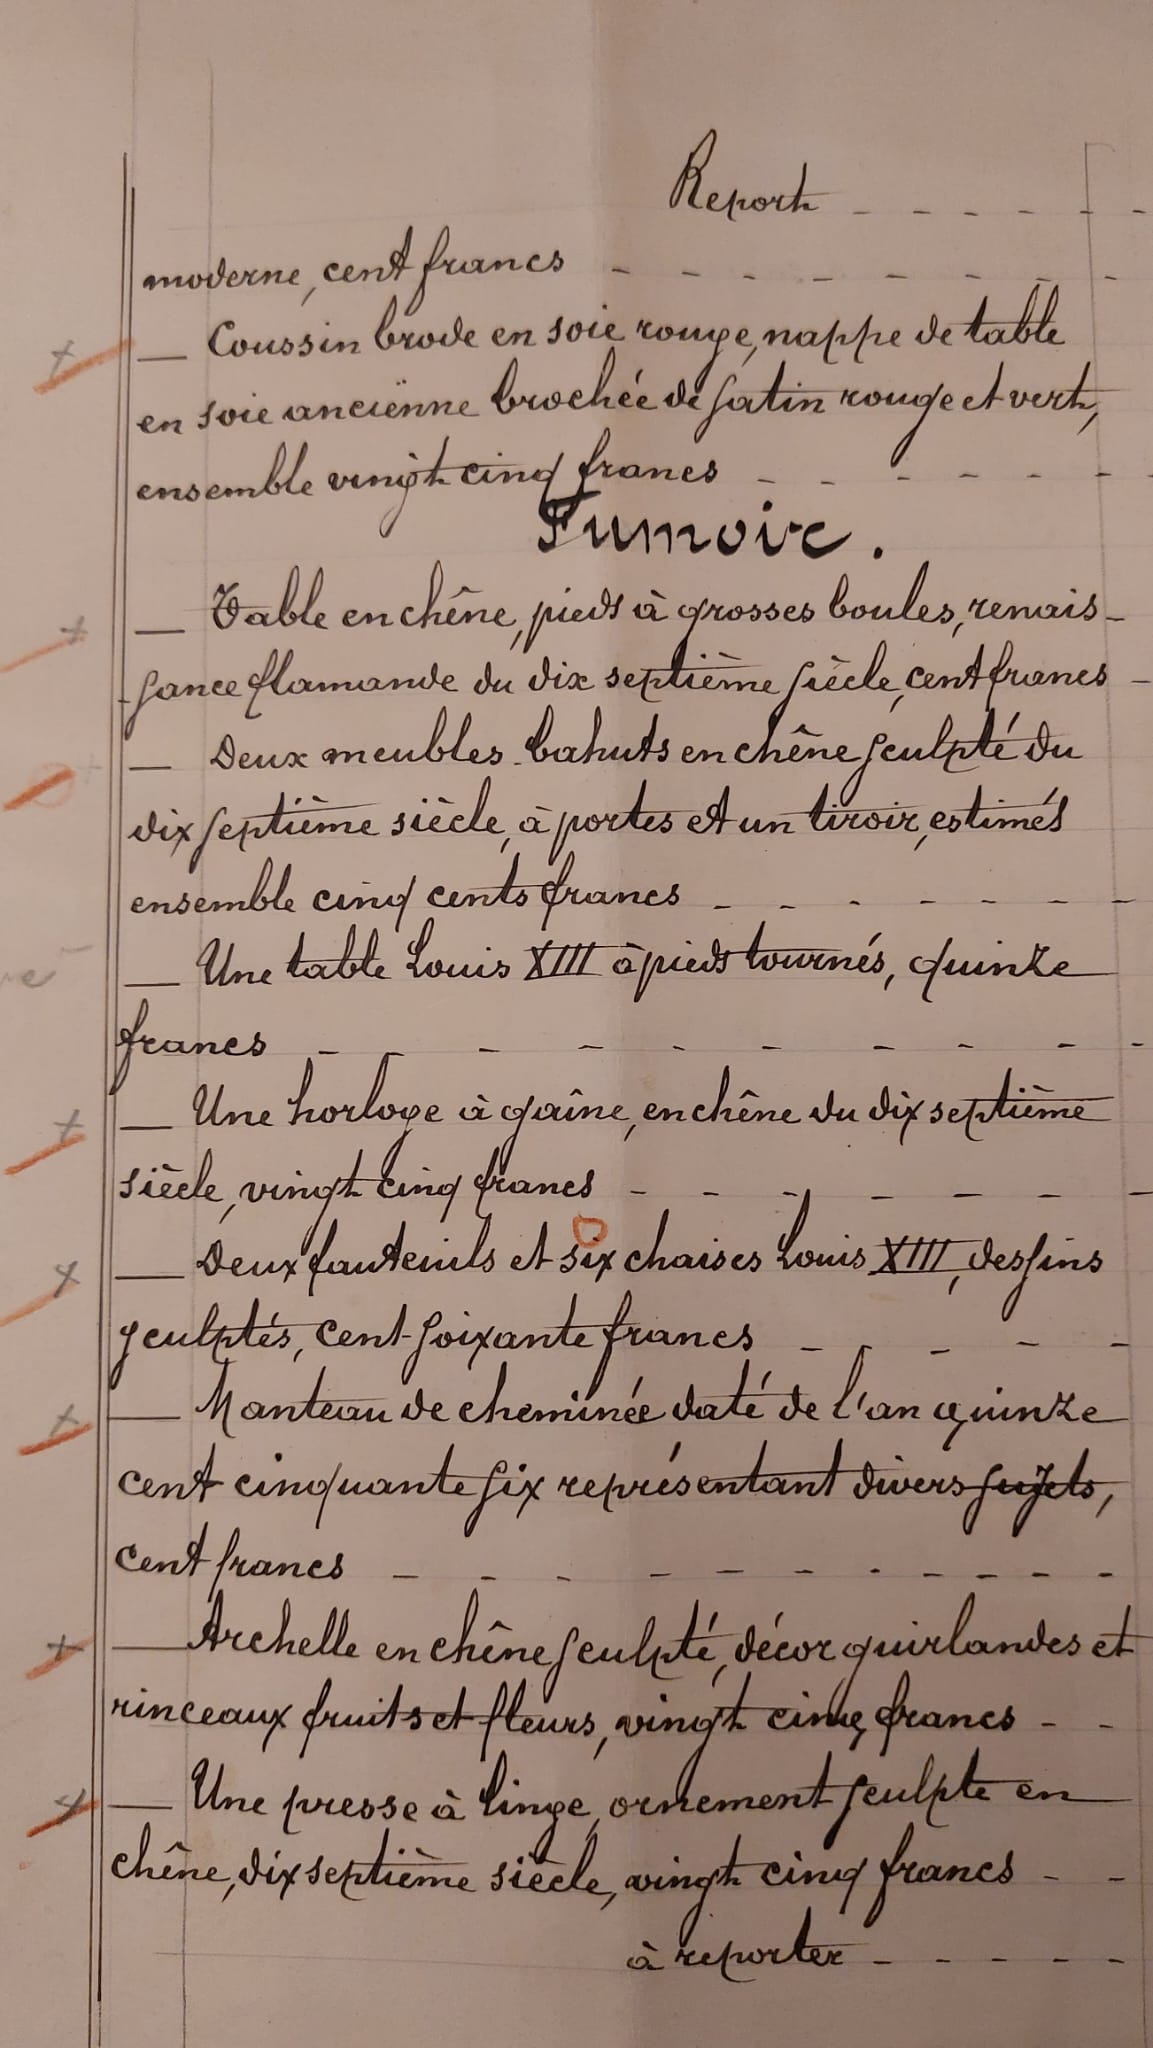 Report - - - - - -
moderne, cent francs - - - - - - - -
— Coussin brodé en soie rouge, nappe de table
en soie ancienne brochée de satin rouge et vert,
ensemble vingt cinq francs - - - - - -
Fumoir.
— Table en chêne, pieds à grosses boules, renais-
sance flamande du dix septième siècle, cent francs -
— Deux meubles-bahuts en chêne sculpté du
dix septième siècle, à portes et un tiroir, estimés
ensemble cinq cents francs - - - - - - -
— Une table Louis XIII à pieds tournés, quinze
francs - - - - - - - - - -
— Une horloge à gaîne, en chêne du dix septième
siècle, vingt cinq francs - - - - - - -
— Deux fauteuils et six chaises Louis XIII, dessins
sculptés, cent-soixante francs - - - - -
— Manteau de cheminée daté de l'an quinze
cent cinquante six représentant divers sujets,
cent francs - - - - - - - - - - -
— Archelle en chêne sculpté, décor guirlandes et
rinceaux fruits et fleurs, vingt cinq francs - -
— Une presse à linge, ornement sculpte en
chêne, dix septième siècle, vingt cinq francs - -
à reporter - - - - -